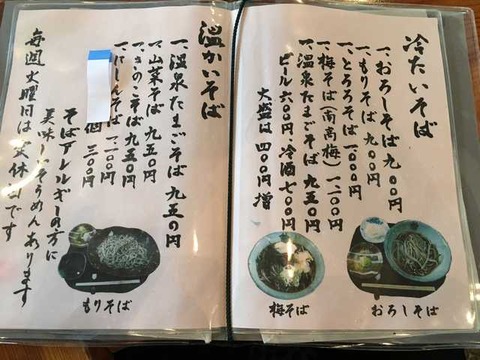 冷たいそば
一、おろしそば 九〇〇円
一、もりそば 九〇〇円
一、とろろそば 一、一〇〇円
一、梅そば(南高梅) 一、二〇〇円
一、温泉たまごそば 九五〇円
ビール 六〇〇円 冷酒 七〇〇円
大盛は 四〇〇円 増
おろしそば
梅そば
温かいそば
一、温泉たまごそば 九五〇円
一、山菜そば 九五〇円
一、きのこそば 九五〇円
一、にしんそば 一、二〇〇円
個 三〇〇円
そばアレルギーの方に
美味しいそうめんあります
毎週火曜日は 定休日です
もりそば